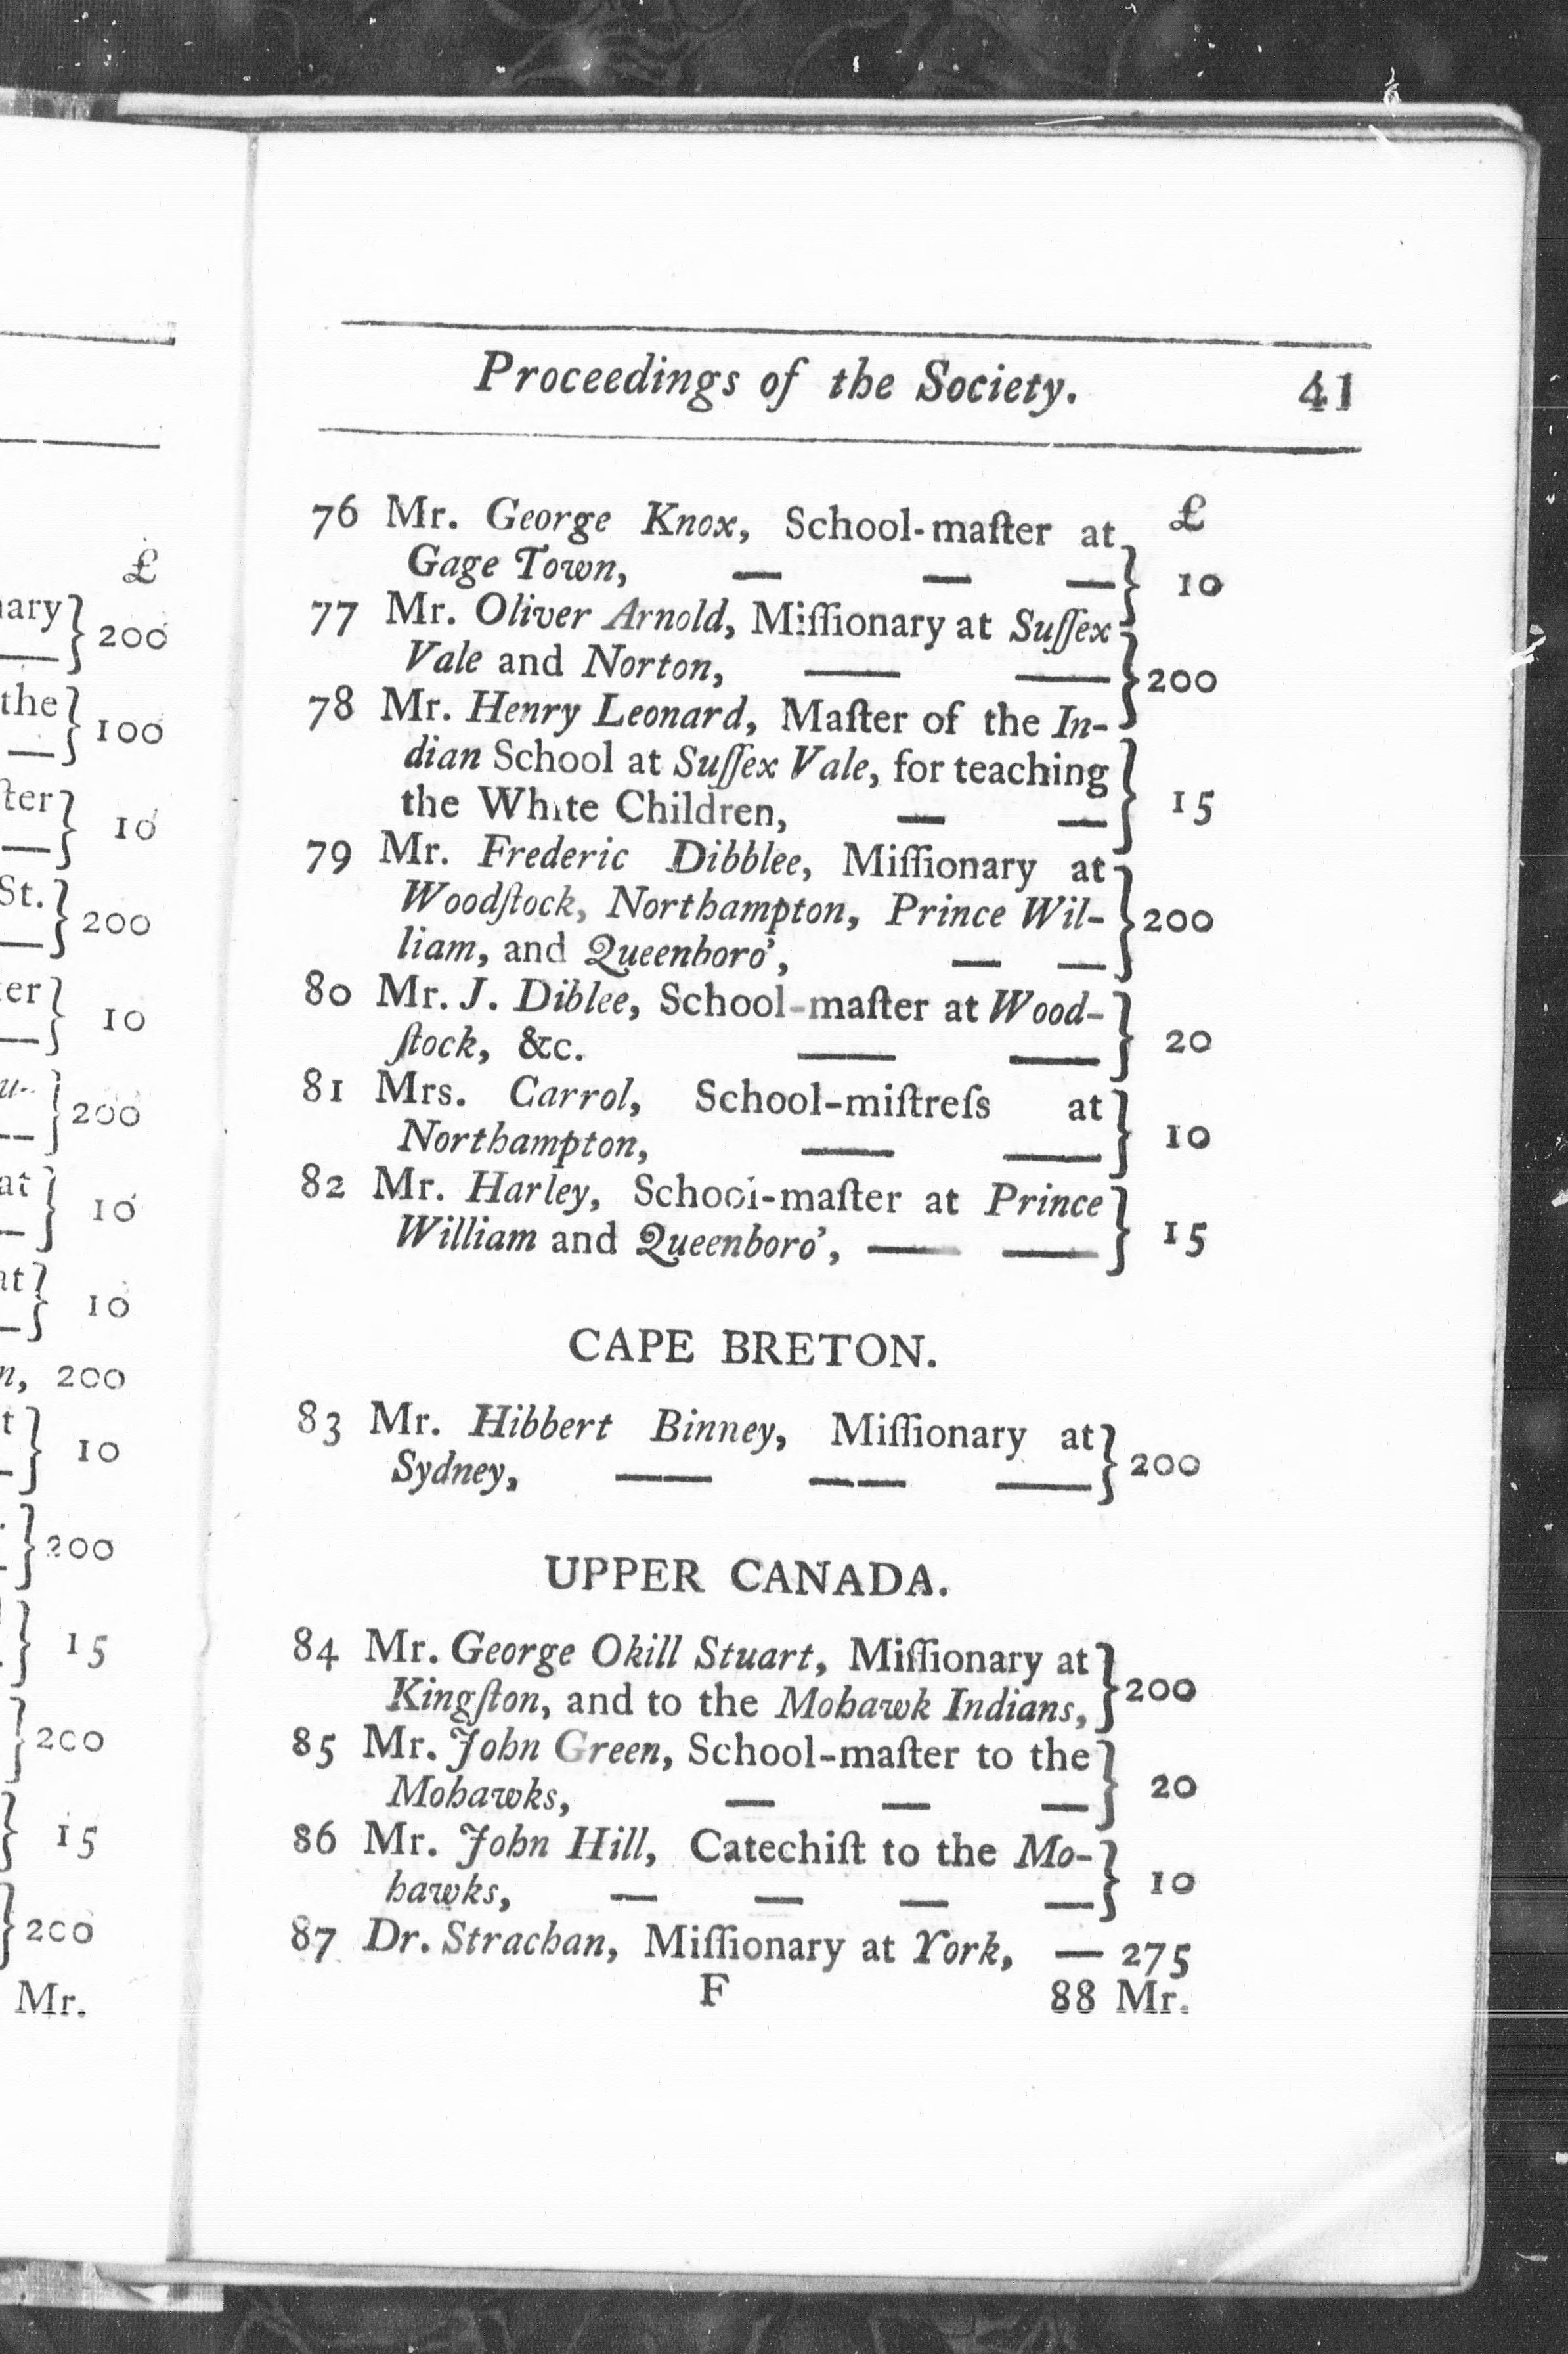 £
200
the
100
10
St.
200
10
200
at
10
10
200
10
200
15
200
15
200
Mr.
Proceedings of the Society. 41
£
76 Mr. George Knox, School-maſter at
Gage Town, — — — 10
77 Mr. Oliver Arnold, Miſſionary at Suſſex
Vale and Norton, — — 200
78 Mr. Henry Leonard, Maſter of the In-
dian School at Suſſex Vale, for teaching
the White Children, — — 15
79 Mr. Frederic Dibblee, Miſſionary at
Woodſtock, Northampton, Prince Wil- 200
liam, and Queenboro', — —
80 Mr. J. Diblee, School-maſter at Wood-
ſtock, &c. — — 20
81 Mrs. Carrol, School-miſtreſs at
Northampton, — — 10
82 Mr. Harley, School-maſter at Prince
William and Queenboro', — — 15
CAPE BRETON.
83 Mr. Hibbert Binney, Miſſionary at
Sydney, — — — 200
UPPER CANADA.
84 Mr. George Okill Stuart, Miſſionary at
Kingſton, and to the Mohawk Indians, 200
85 Mr. John Green, School-maſter to the
Mohawks, — — — 20
86 Mr. John Hill, Catechiſt to the Mo-
hawks, — — — — 10
87 Dr. Strachan, Miſſionary at York, — 275
F 88 Mr.